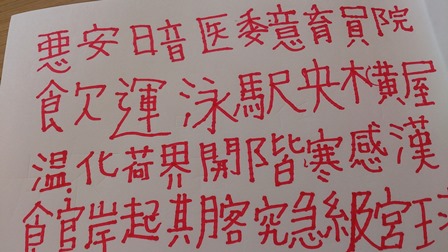 悪安暗医委意育員院
飲運泳駅央横屋
温化荷界開階寒感漢
館岸起期客究急級宮